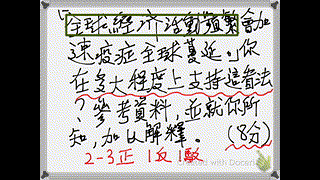 全球經濟活動頻繁會加
速疫症全球蔓延。你
在多大程度上支持這看法
？參考資料，並就你所
知，加以解釋。(8分)
2-3正 1反 1駁